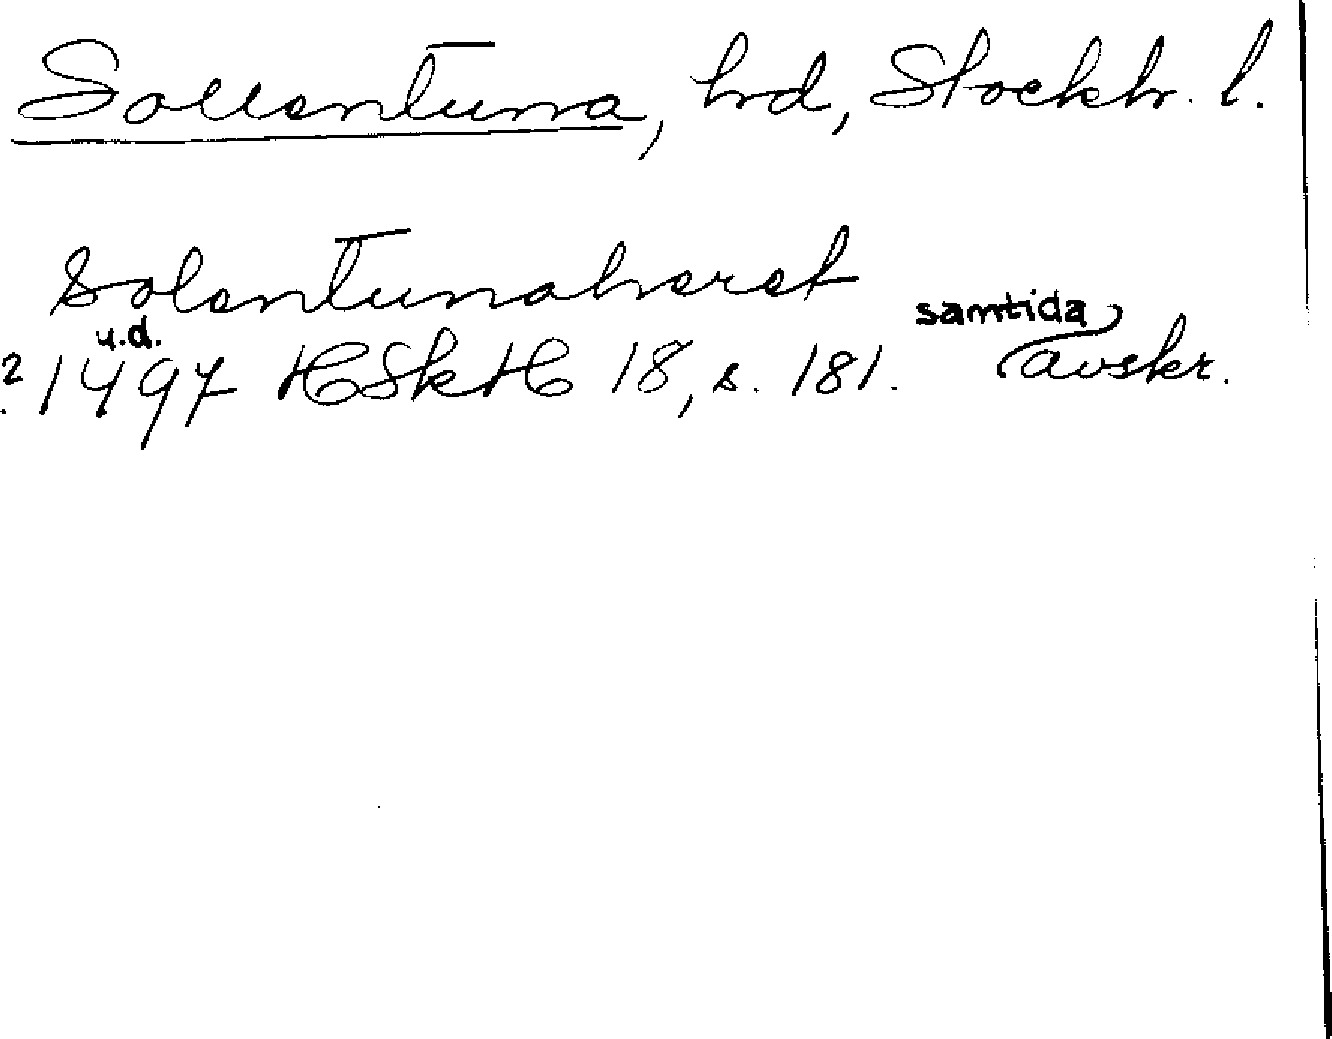 Sollentuna, hrd, Stockh. l.
Solentunaheret
u.d. samtida
? 1497 HSkH 18, s. 181. avskr.